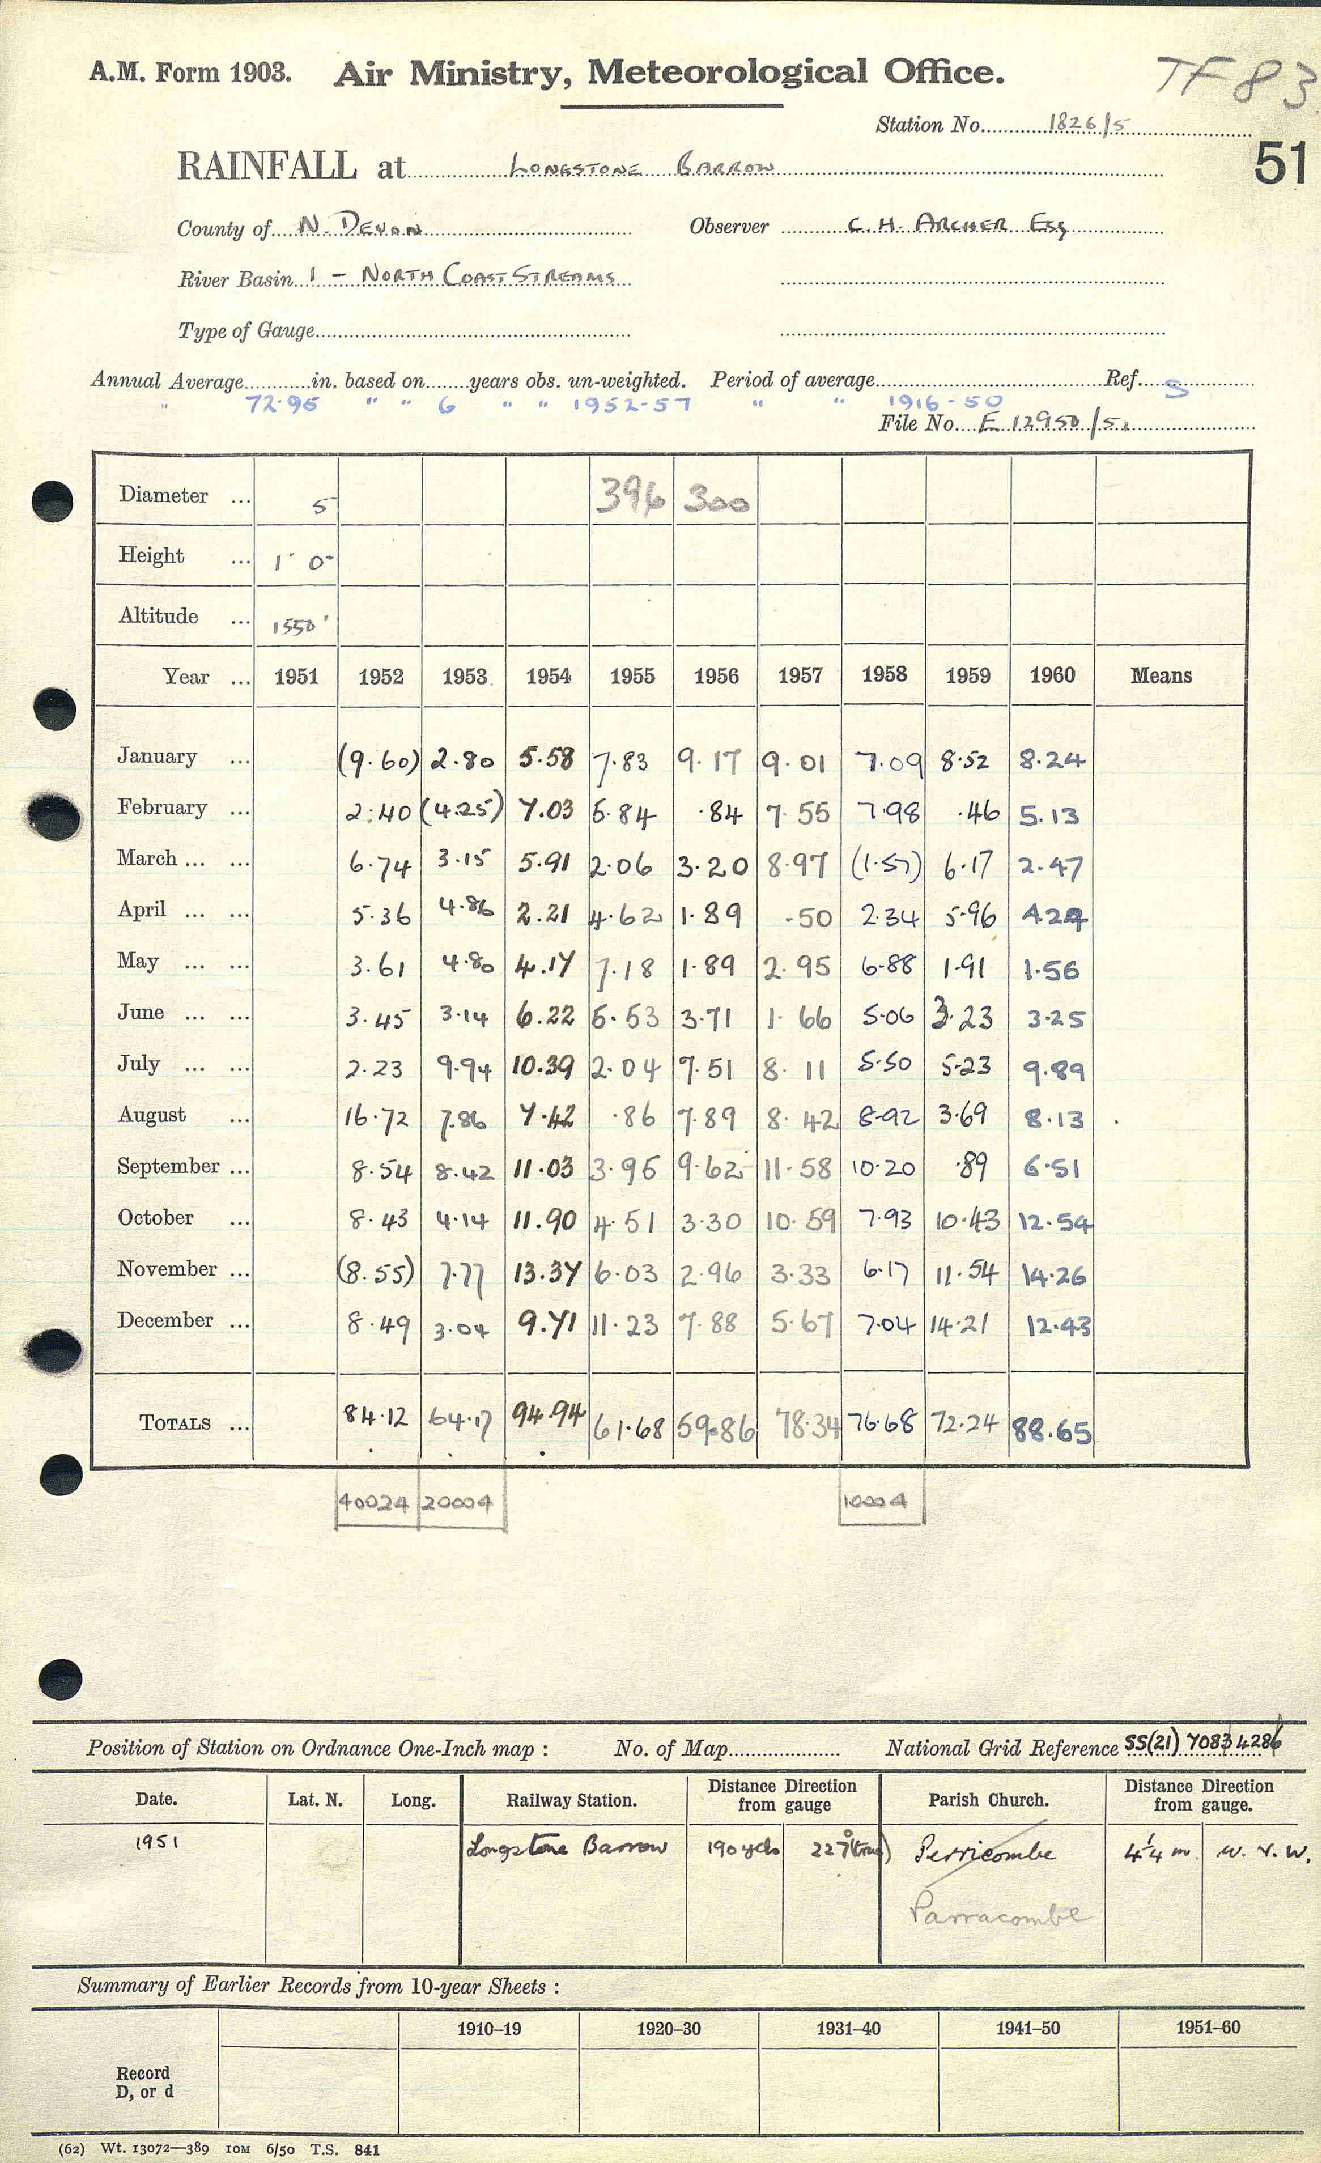 A.M. Form 1903. Air Ministry, Meteorological Office. TF 83
Station No. 1826/5
51
RAINFALL at LONGSTONE BARROW
County of N. DEVON Observer C. H. ARCHER ESQ
River Basin 1 - NORTH COAST STREAMS
Type of Gauge
Annual Average in. based on years obs. un-weighted. Period of average Ref. S
" 72.95 " " 6 " " 1952-57 " " 1916-50
File No. E 12950/51
Diameter ... 5 396 300
Height ... 1' 0"
Altitude ... 1550'
Year ... 1951 1952 1953 1954 1955 1956 1957 1958 1959 1960 Means
January ... (9.60) 2.80 5.58 7.83 9.17 9.01 7.09 8.52 8.24
February ... 2.40 (4.25) 7.03 5.84 .84 7.55 7.98 .46 5.13
March ... ... 6.74 3.15 5.91 2.06 3.20 8.97 (1.57) 6.17 2.47
April ... ... 5.36 4.86 2.21 4.62 1.89 .50 2.34 5.96 4.24
May ... ... 3.61 4.80 4.17 7.18 1.89 2.95 6.88 1.91 1.56
June ... ... 3.45 3.14 6.22 5.53 3.71 1.66 5.06 3.23 3.25
July ... ... 2.23 9.94 10.39 2.04 7.51 8.11 5.50 5.23 9.89
August ... 16.72 7.86 7.42 .86 7.89 8.42 8.92 3.69 8.13
September ... 8.54 8.42 11.03 3.95 9.62 11.58 10.20 .89 6.51
October ... 8.43 4.14 11.90 4.51 3.30 10.59 7.93 10.43 12.54
November ... (8.55) 7.77 13.37 6.03 2.96 3.33 6.17 11.54 14.26
December ... 8.49 3.04 9.71 11.23 7.88 5.67 7.04 14.21 12.43
TOTALS ... 84.12 64.17 94.94 61.68 59.86 78.34 76.68 72.24 88.65
40024 20004 10004
Position of Station on Ordnance One-Inch map : No. of Map National Grid Reference SS(21) 7083 4286
Date. Lat. N. Long. Railway Station. Distance Direction from gauge Parish Church. Distance Direction from gauge.
1951 Longstone Barrow 190 yds 227° (true) Perricombe 4¼ m W. N. W.
Parracombe
Summary of Earlier Records from 10-year Sheets :
1910–19 1920–30 1931–40 1941–50 1951–60
Record
D, or d
(62) Wt. 13072—389 10M 6/50 T.S. 841